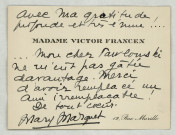 Avec ma gratitude
profonde et très émue !..
MADAME VICTOR FRANCEN
... Mon cher Pawlowski
ne m'ont pas gâtée
davantage. Merci
d'avoir remplacé un
ami irremplaçable !
De tout cœur.
Mary Marquet